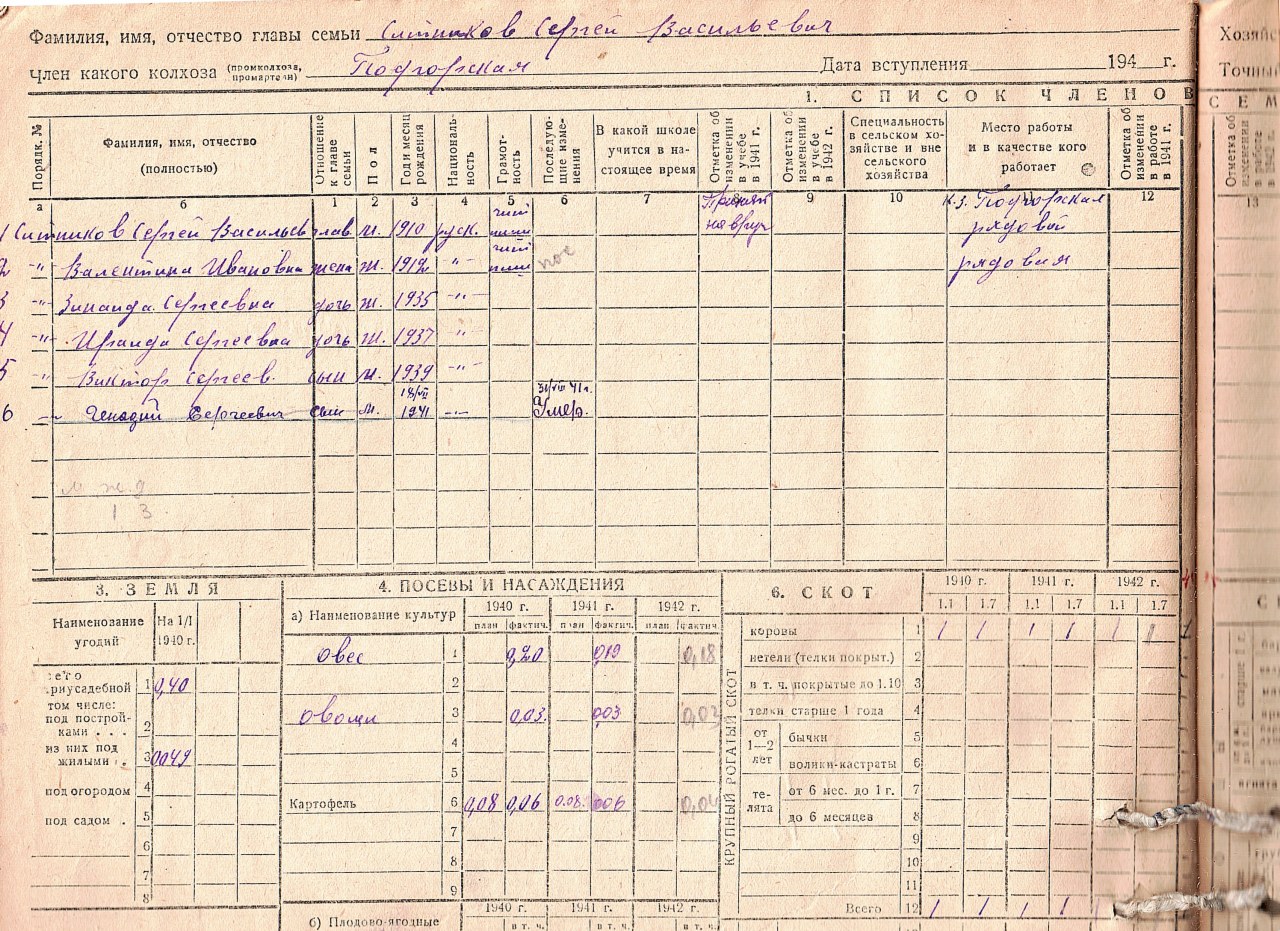 Фамилия, имя, отчество главы семьи Ситников Сергей Васильевич
Член какого колхоза (промколхоза, промартели) Подгорская Дата вступления 194 г.
1. СПИСОК ЧЛЕНОВ
Порядк. №
Фамилия, имя, отчество (полностью)
Отношение к главе семьи
Пол
Год и месяц рождения
Националь-ность
Грамот-ность
Последую-щие изме-нения
В какой школе учится в на-стоящее время
Отметка об изменении в учебе в 1941 г.
Отметка об изменении в учебе в 1942 г.
Специальность в сельском хо-зяйстве и вне сельского хозяйства
Место работы и в качестве кого работает
Отметка об изменении в работе в 1941 г.
а б 1 2 3 4 5 6 7 8 9 10 11 12
1 Ситников Сергей Васильев глав м. 1910 руск. к-з. Подгорская рядовой
2 -"- Валентина Ивановна жена ж. 1912 -"- пос рядовая
3 -"- Зинаида Сергеевна дочь ж. 1935 -"-
4 -"- Ираида Сергеевна дочь ж. 1937 -"-
5 -"- Виктор Сергеев. сын м. 1939 -"-
6 -"- Генадий Сергеевич сын м. 18/VII 1941 -"- 31/VIII 41 г. Умер.
м ж д
1 3
3. ЗЕМЛЯ
Наименование угодий На 1/I 1940 г.
приусадебной 1 0,40
том числе:
под построй-ками . . . 2
из них под жилыми . . 3 0049
под огородом 4
под садом . 5
6
7
8
4. ПОСЕВЫ И НАСАЖДЕНИЯ
а) Наименование культур 1940 г. 1941 г. 1942 г.
план фактич. план фактич. план фактич.
Овес 1 0,20 0,19 0,18
2
Овощи 3 0,03. 003 0,03
4
5
Картофель 6 0,08 0,06 0.08. 006
7
8
9
1940 г. 1941 г. 1942 г.
б) Плодово-ягодные в т. ч. в т. ч. в т. ч.
6. СКОТ
1940 г. 1941 г. 1942 г.
1.1 1.7 1.1 1.7 1.1 1.7
КРУПНЫЙ РОГАТЫЙ СКОТ
коровы 1 1 1 1 1 1 1
нетели (телки покрыт.) 2
в т. ч. покрытые до 1.10 3
телки старше 1 года 4
от 1—2 лет
бычки 5
волики-кастраты 6
те-лята
от 6 мес. до 1 г. 7
до 6 месяцев 8
9
10
11
Всего 12 1 1 1 1
Точный
СЕМ
13